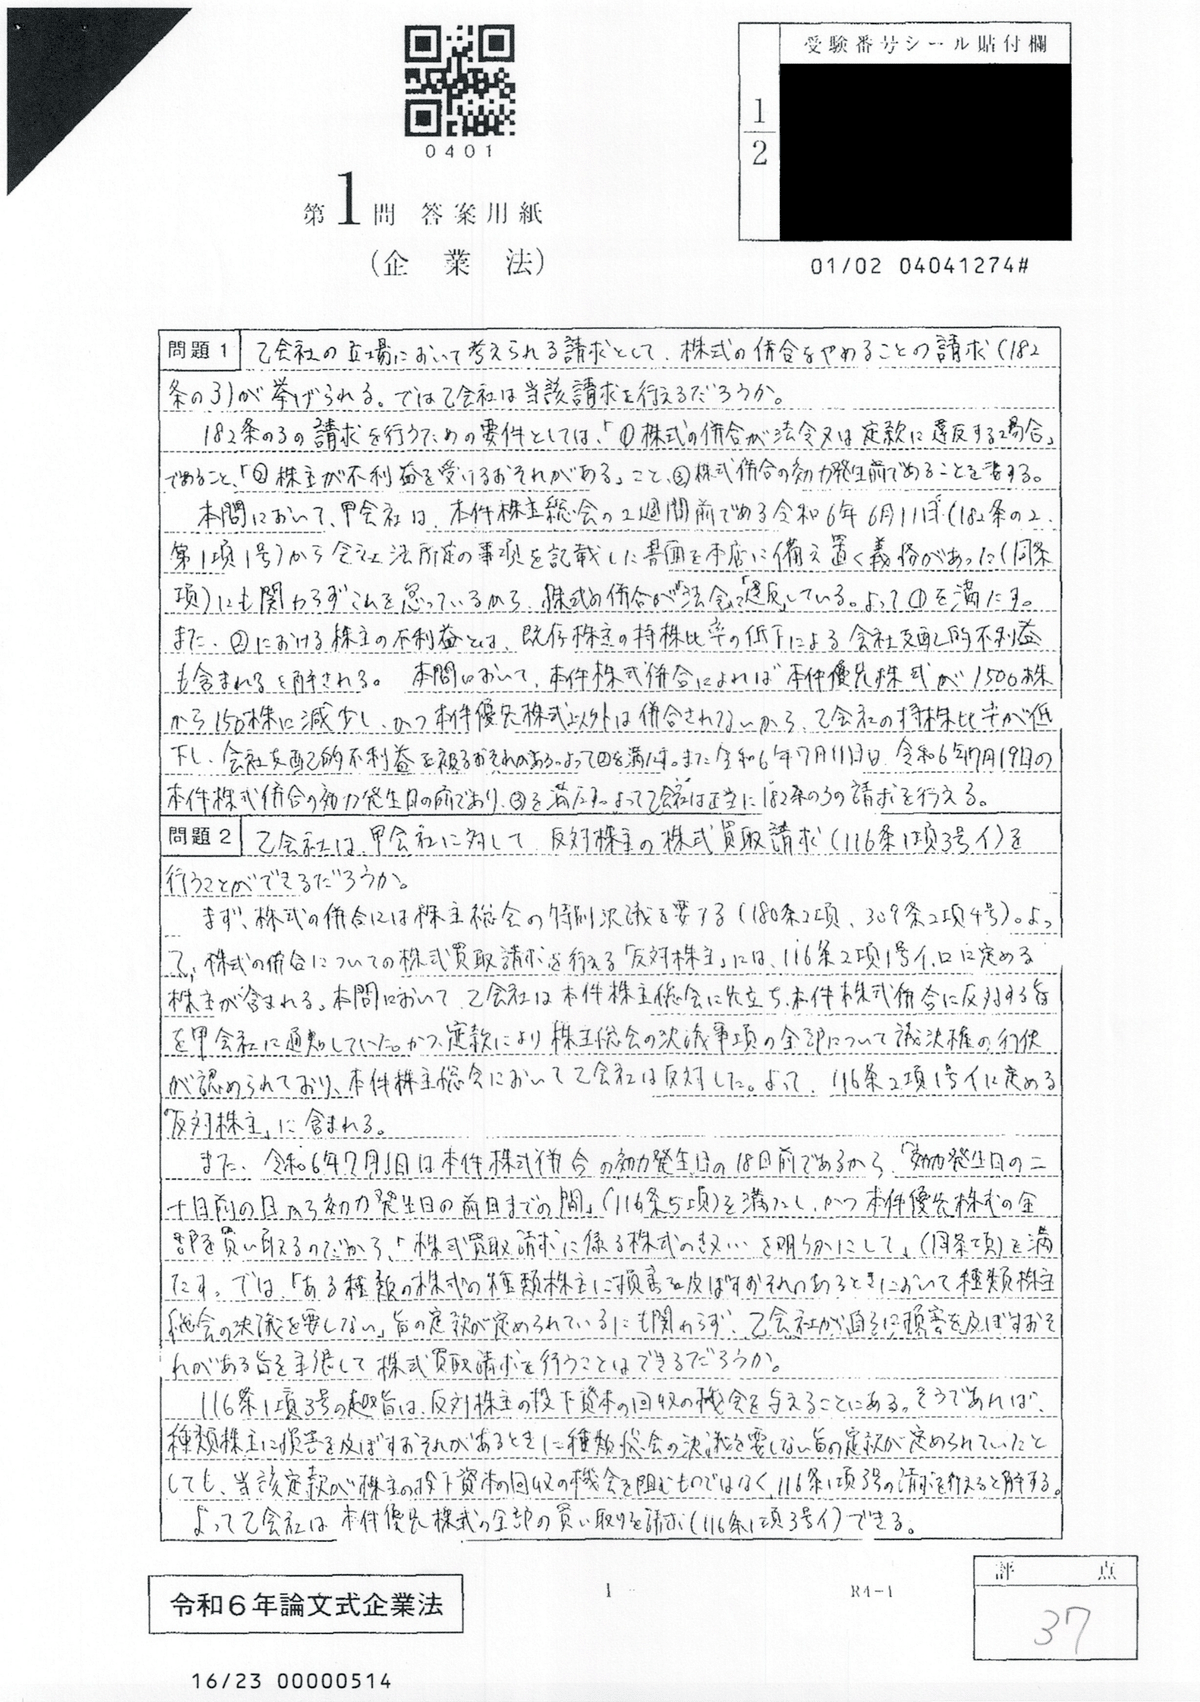 0401
第1問 答案用紙
(企業法)
受験番号シール貼付欄
1/2
01/02 04041274#
問題1 乙会社の立場において考えられる請求として、株式の併合をやめることの請求(182
条の3)が挙げられる。では乙会社は当該請求を行えるだろうか。
182条の3の請求を行うための要件としては、「①株式の併合が法令又は定款に違反する場合」
であること、「②株主が不利益を受けるおそれがある」こと、③株式併合の効力発生前であることを要する。
本問において、甲会社は、本件株主総会の2週間前である令和6年6月11日(182条の2
第1項1号)から会社法所定の事項を記載した書面を本店に備え置く義務があった(同条
項)にも関わらずこれを怠っているから、株式の併合が「法令」に「違反」している。よって①を満たす。
また、②における株主の不利益とは、既存株主の持株比率の低下による会社支配的不利益
も含まれると解される。本問において、本件株式併合によれば本件優先株式が1500株
から150株に減少し、かつ本件優先株式以外は併合されないから、乙会社の持株比率が低
下し、会社支配的不利益を被るおそれがある。よって②を満たす。また令和6年7月1日は、令和6年7月19日の
本件株式併合の効力発生日の前であり、③を満たす。よって乙会社は正当に182条の3の請求を行える。
問題2 乙会社は、甲会社に対して、反対株主の株式買取請求(116条1項3号イ)を
行うことができるだろうか。
まず、株式の併合には株主総会の特別決議を要する(180条2項、309条2項4号)。よっ
て、株式の併合についての株式買取請求を行える「反対株主」には、116条2項1号イ、ロに定める
株主が含まれる。本問において、乙会社は本件株主総会に先立ち、本件株式併合に反対する旨
を甲会社に通知していた。かつ、定款により株主総会の決議事項の全部について議決権の行使
が認められており、本件株主総会において乙会社は反対した。よって、116条2項1号イに定める
「反対株主」に含まれる。
また、令和6年7月1日は本件株式併合の効力発生日の18日前であるから、「効力発生日の二
十日前の日から効力発生日の前日までの間」(116条5項)を満たし、かつ本件優先株式の全
部を買い取えるのだから、「株式買取請求に係る株式の数…を明らかにして」(同条項)を満
たす。では、「ある種類の株式の種類株主に損害を及ぼすおそれのあるときにおいて種類株主
総会の決議を要しない」旨の定款が定められているにも関わらず、乙会社が自らに損害を及ぼすおそ
れがある旨を主張して株式買取請求を行うことはできるだろうか。
116条1項3号の趣旨は、反対株主の投下資本の回収の機会を与えることにある。そうであれば、
種類株主に損害を及ぼすおそれがあるときに種類総会の決議を要しない旨の定款が定められていたと
しても、当該定款が株主の投下資本の回収の機会を阻むものではなく、116条1項3号の請求を行えると解する。
よって乙会社は本件優先株式の全部の買い取りを請求(116条1項3号イ)できる。
令和6年論文式企業法
1
R4-1
評点
37
16/23 00000514